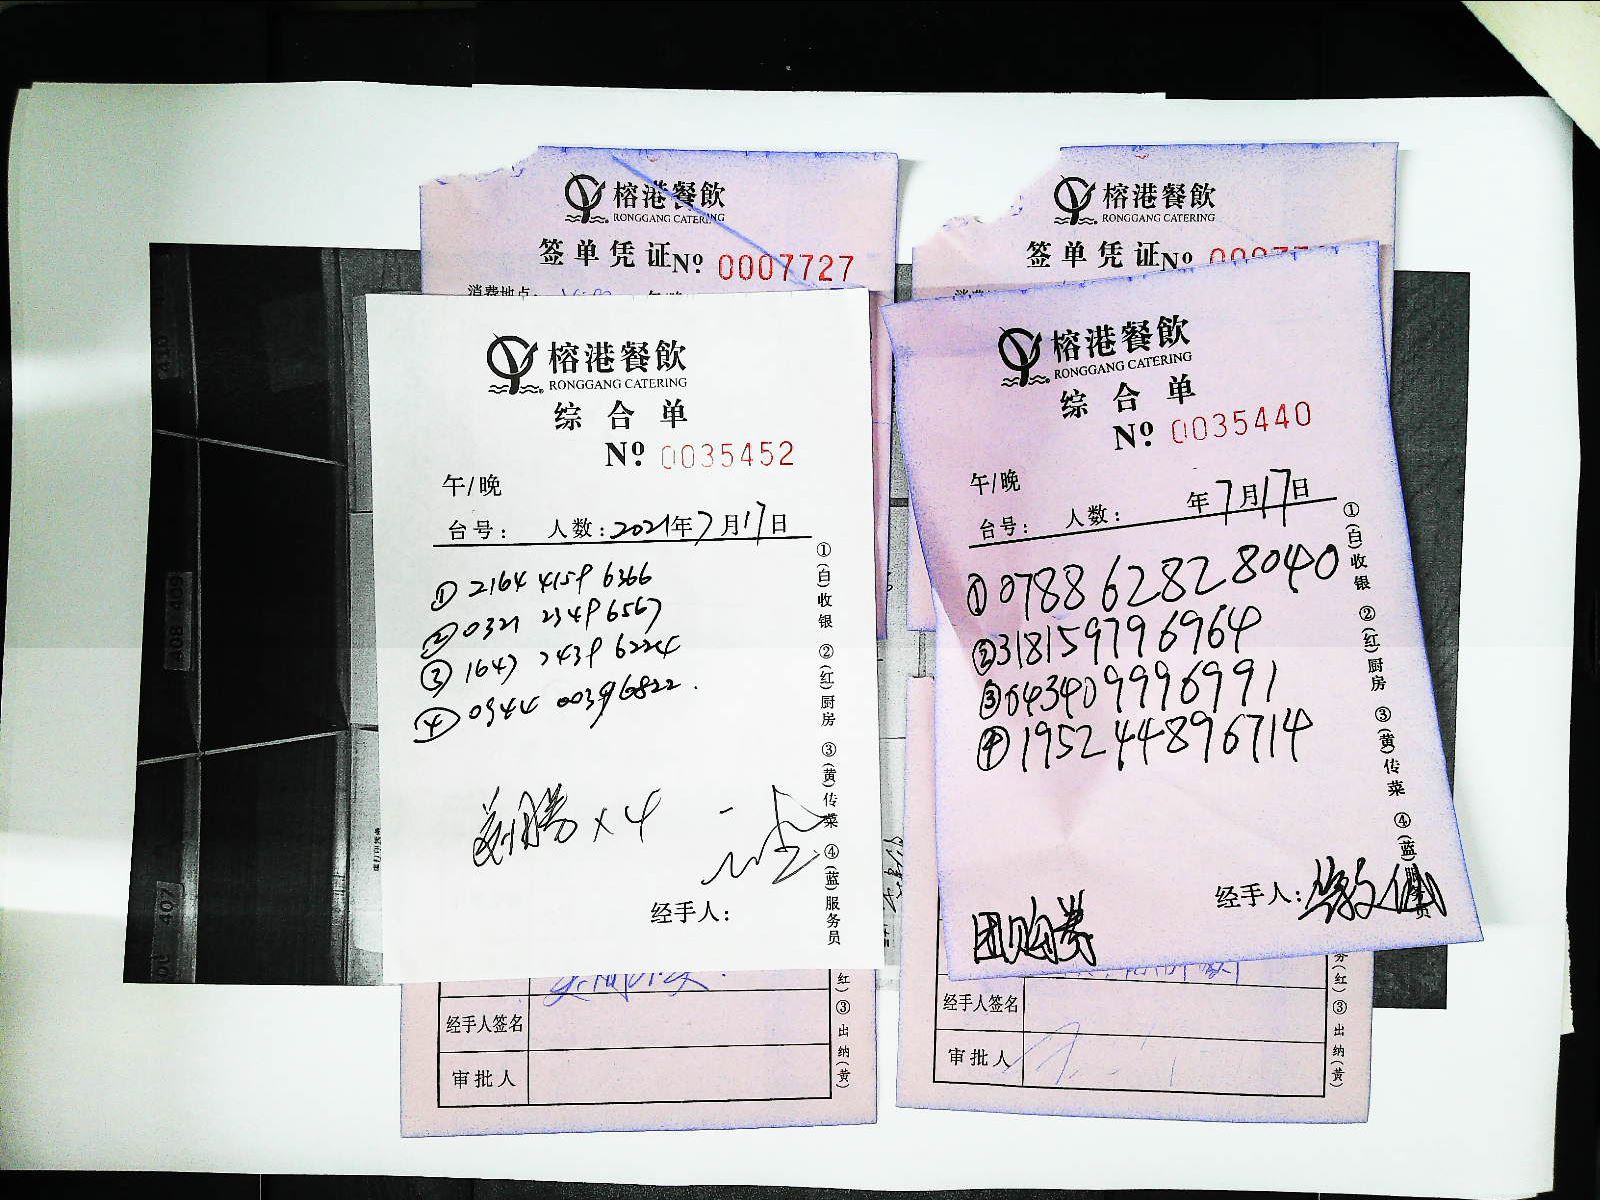 榕港餐飲
RONGGANG CATERING
签单凭证 Nº 0007727
消费地点:
榕港餐飲
RONGGANG CATERING
签单凭证 Nº
榕港餐飲
RONGGANG CATERING
综合单
Nº 0035452
午/晚
台号: 人数: 2021年7月17日
① 2164 4159 6366
② 0321 2349 6567
③ 1647 2439 6224
④ 0944 00396822.
×4
经手人:
①(白)收银 ②(红)厨房 ③(黄)传菜 ④(蓝)服务员
榕港餐飲
RONGGANG CATERING
综合单
Nº 0035440
午/晚
台号: 人数: 年7月17日
① 0788 6282 8040
② 318159796964
③ 043409996991
④ 195244896714
团购券
经手人:
①(白)收银 ②(红)厨房 ③(黄)传菜 ④(蓝)
经手人签名
审批人
(红)③出纳(黄)
经手人签名
审批人
(红)③出纳(黄)
408 409
407